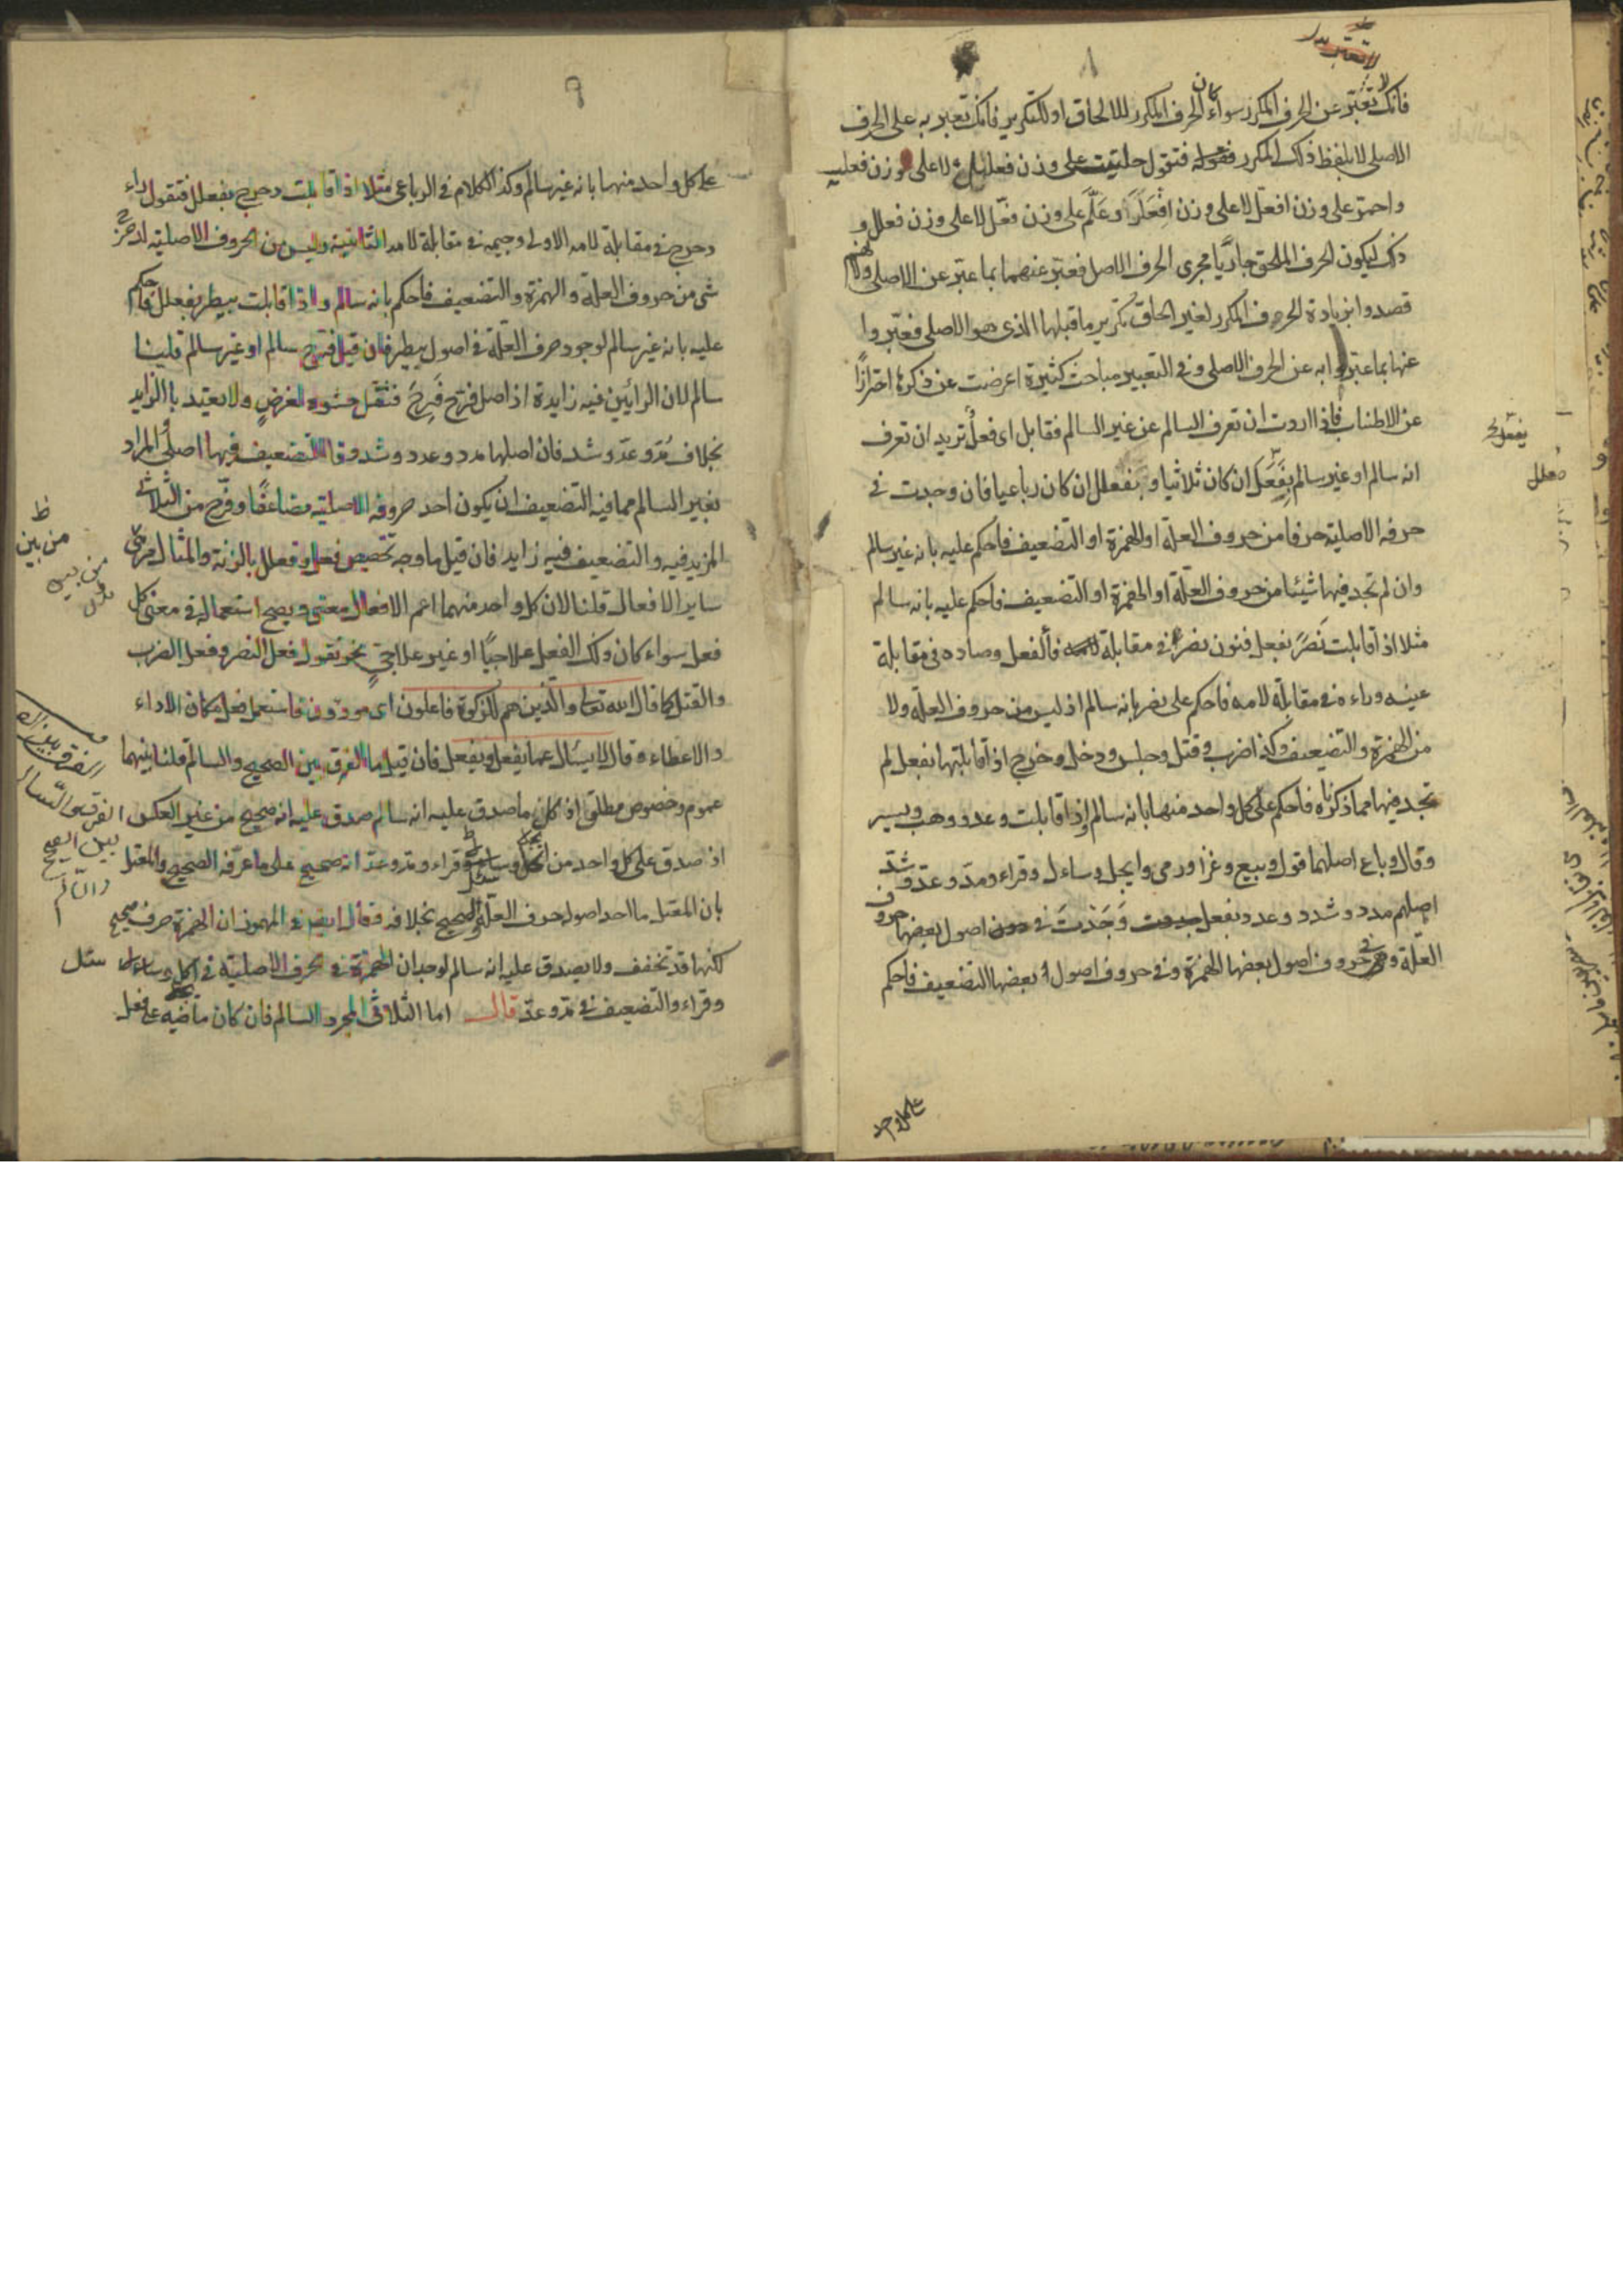 لا تعتبر
فانك لا تعتبر عن الحرف المكرر سواء كان الحرف المكرر للالحاق او للتكرير فانك تعبر به على الحرف
الاصلى لا بلفظ ذلك المكرر فتقول حلتيت على وزن فعليل لا على وزن فعليت
واحمر على وزن افعل لا على وزن افعلر وعلم على وزن فعل لا على وزن فعلل و
ذلك ليكون الحرف الملحق جاريا مجرى الحرف الاصل فعبر عنهما بما عبر عن الاصلى ولانهم
قصدوا بزيادة الحرف المكرر لغير الحاق تكرير ما قبلها الذى هو الاصلى فعبروا
عنها بما عبروا به عن الحرف الاصلى وفى التعبير مباحث كثيرة اعرضت عن ذكرها احترازا
عن الاطناب فاذا اردت ان تعرف السالم عن غير السالم فقابل اى فعل تريد ان تعرف
انه سالم او غير سالم بفعل ان كان ثلاثيا او بفعلل ان كان رباعيا فان وجدت فى
حرفه الاصلية حرفا من حروف العلة او الهمزة او التضعيف فاحكم عليه بانه غير سالم
وان لم تجد فيها شيئا من حروف العلة او الهمزة او التضعيف فاحكم عليه بانه سالم
مثلا اذا قابلت نصر بفعل فنون نصر فى مقابلة فا الفعل وصاده فى مقابلة
عينه وراءه فى مقابلة لامه فاحكم على نصر بانه سالم اذ ليس من حروف العلة ولا
من الهمزة والتضعيف وكذا ضرب وقتل وجلس ودخل وخرج اذا قابلتها بفعل لم
تجد فيها مما ذكرناه فاحكم على كل واحد منها بانه سالم واذا قابلت وعد ووهب ويسر
وقال وباع اصلهما قول وبيع وغزا ورمى وايجل وساءل وقراء ومد وعد وشد
اصلهم مدد وشدد وعدد بفعل وجدت فى اصول بعضها حروف
العلة وفى حروف اصول بعضها الهمزة وفى حروف اصول بعضها التضعيف فاحكم
على كل واحد
يفعل
فعلل
على كل واحد منهما بانه غير سالم وكذا الكلام فى الرباعى مثلا اذا قابلت دحرج بفعلل فتقول راء
دحرج فى مقابلة لامه الاولى وجيمه فى مقابلة لامه الثانية وليس من الحروف الاصلية لدحرج
شى من حروف العلة والهمزة والتضعيف فاحكم بانه سالم واذا قابلت بيطر بفعلل فاحكم
عليه بانه غير سالم لوجود حرف العلة فى اصول بيطر فان قيل فرح سالم او غير سالم قلينا
سالم لان الرائين فيه زايدة اذ اصل فرح فرح فثقل حشوه لغرض ولا يعتد بالزايد
بخلاف مد وعد وشد فان اصلها مدد وعدد وشدد وقا التضعيف فيها اصلى والمراد
بغير السالم مما فيه التضعيف ان يكون احد حروفه الاصلية مضاعفا وفرح من الثلاثى
المزيد فيه والتضعيف فيه زايد فان قيل ما وجه تخصيص فعل وفعلل بالزنة والمثال من
ساير الافعال قلنا لان كل واحد منهما اعم الافعال معنى ويصح استعماله فى معنى كل
فعل سواء كان ذلك الفعل علاجيا او غير علاجى نحو تقول فعل النصر وفعل الضرب
والقتل كما قال الله تعالى والذين هم للزكوة فاعلون اى مودون فاستعمل فعل مكان الاداء
والاعطاء وقال لا يسئل عما يفعل ويفعل فان قيل ما الفرق بين الصحيح والسالم قلنا بينهما
عموم وخصوص مطلق اذ كل ما صدق عليه انه سالم صدق عليه انه صحيح من غير العكس
اذ صدق على كل واحد من اكل وسئل وقراء ومد وعد انه صحيح على ما عرفه الصحيح والمعتل
بان المعتل ما احد اصوله حرف العلة والصحيح بخلافه فقال ايض فى المهموز ان الهمزة حرف صحيح
لكنها قد تخفف ولا يصدق عليه انه سالم لوجدان الهمزة فى الحرف الاصلية فى اكل وسئل
وقراء والتضعيف فى مد وعد قال اما الثلاثى المجرد السالم فان كان ماضيه على فعل
ظ
من بين
من بين
الفرق بين الصحيح والسالم
الفرق
بين الصحيح
والسالم